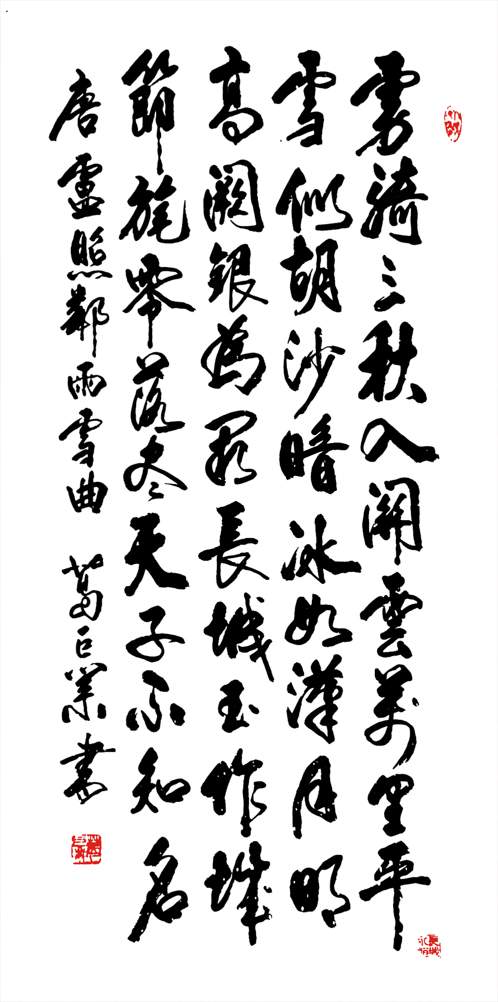 虜騎三秋入關雲萬里平
雪似胡沙暗冰如漢月明
高闕銀為闕長城玉作城
節旄零落尽天子不知名
唐盧照鄰雨雪曲 葛巨業書